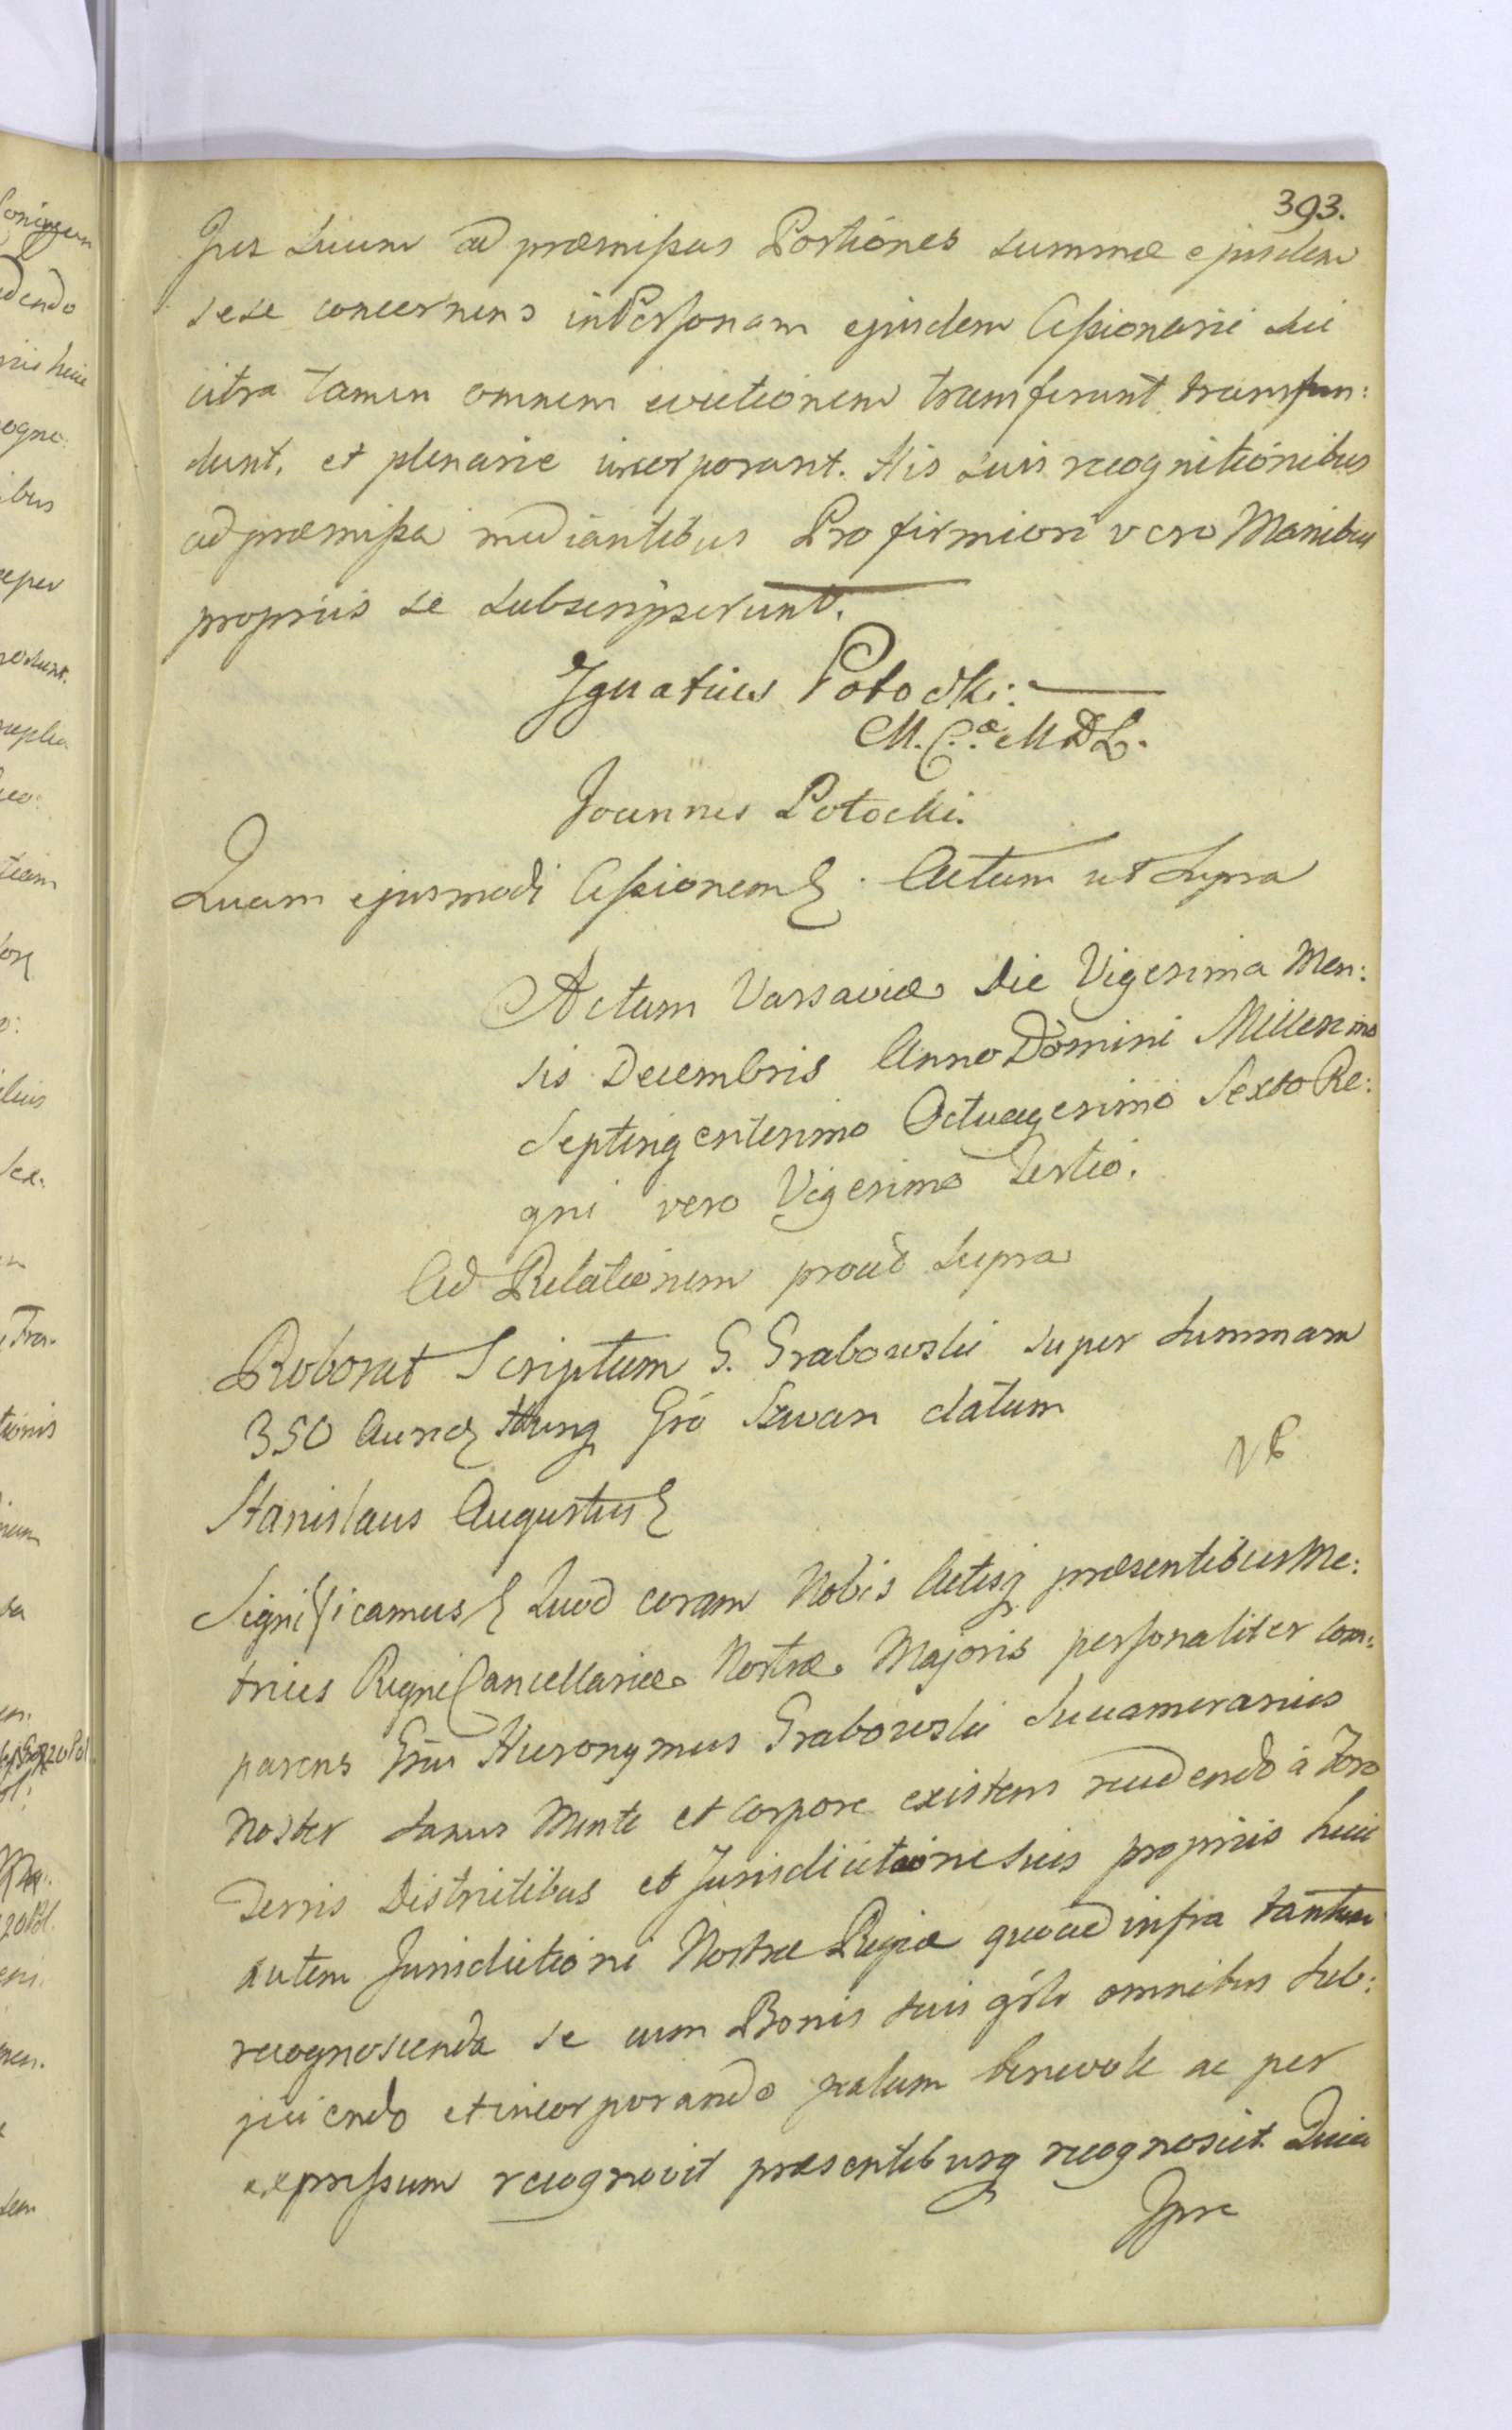 393.
Jus suum ad præmissas Portiones summæ ejusdem
sese concernens in Personam ejusdem Cessionarii sui
citra tamen omnem evictionem transferunt transfun:
dunt, et plenarie incorporant. His suis recognitionibus
ad præmissa mediantibus Pro firmiori vero Manibus
propriis se subscripserunt.
Ignatius Potocki.
M. C.æ M D L.
Joannes Potocki.
Quam ejusmodi Cessionem Actum ut Supra
Actum Varsaviæ Die Vigesima Men:
sis Decembris Anno Domini Millesimo
Septingentesimo Octuagesimo Sexto Re:
gni vero Vigesimo Tertio.
Ad Relationem prout supra
Roborat Scriptum G. Grabowski super summam
350 Aureor Hung Gro Szwan datum
Stanislaus Augustus
Significamus Quod coram Nobis Actisq præsentibus Me:
trices Regni Cancellariæ Nostræ Majoris personaliter com:
parens Grus Hieronymus Grabowski Succamerarius
Noster sanus Mente et corpore existens recedendo à Foro
Terris Districtibus et Jurisdictione suis propriis huic
autem Jurisdictioni Nostræ Regiæ quoad infra tantum
recognoscenda se cum Bonis suis gñlr omnibus sub:
jiciendo et incorporando palam benevole ac per
expressum recognovit præsentibusq recognoscit Quia
Ipse